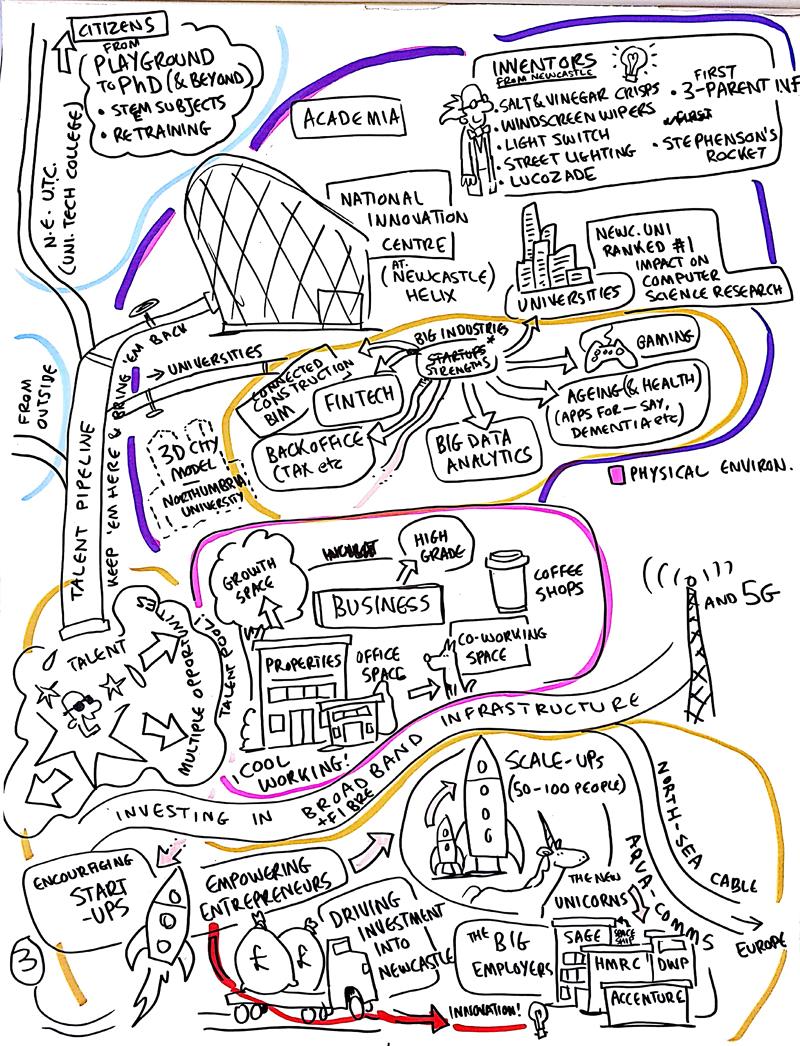 CITIZENS
FROM
PLAYGROUND
TO PhD (& BEYOND)
• STEM SUBJECTS
• RETRAINING
N.E. UTC.
(UNI. TECH COLLEGE)
ACADEMIA
INVENTORS
FROM NEWCASTLE
• SALT & VINEGAR CRISPS
• WINDSCREEN WIPERS
• LIGHT SWITCH
• STREET LIGHTING
• LUCOZADE
• FIRST
3-PARENT INF
• FIRST
• STEPHENSON'S
ROCKET
NATIONAL
INNOVATION
CENTRE
(AT. NEWCASTLE)
HELIX
UNIVERSITIES
NEWC. UNI
RANKED #1
IMPACT ON
COMPUTER
SCIENCE RESEARCH
FROM
OUTSIDE
TALENT PIPELINE
KEEP 'EM HERE & BRING 'EM BACK
→ UNIVERSITIES
3D CITY
MODEL
NORTHUMBRIA
UNIVERSITY
BIG INDUSTRIES
STARTUPS*
STRENGTHS
CONNECTED
CONSTRUCTION
BIM
FINTECH
BACK OFFICE
(TAX etc
BIG DATA
ANALYTICS
GAMING
AGEING (& HEALTH)
(APPS FOR — SAY,
DEMENTIA etc)
PHYSICAL ENVIRON.
GROWTH
SPACE
HIGH
GRADE
BUSINESS
COFFEE
SHOPS
PROPERTIES
OFFICE
SPACE
CO-WORKING
SPACE
¡COOL
WORKING!
TALENT
MULTIPLE OPPORTUNITIES
TALENT POOL!
AND 5G
INVESTING IN BROADBAND INFRASTRUCTURE
+FIBRE
NORTH-SEA CABLE
AQVA-COMMS
EUROPE
SCALE-UPS
(50-100 PEOPLE)
THE NEW
UNICORNS
ENCOURAGING
START
-UPS
EMPOWERING
ENTREPRENEURS
DRIVING
INVESTMENT
INTO
NEWCASTLE
£ £
THE BIG
EMPLOYERS
SAGE
SPACE
SHIP
HMRC
DWP
ACCENTURE
INNOVATION!
3